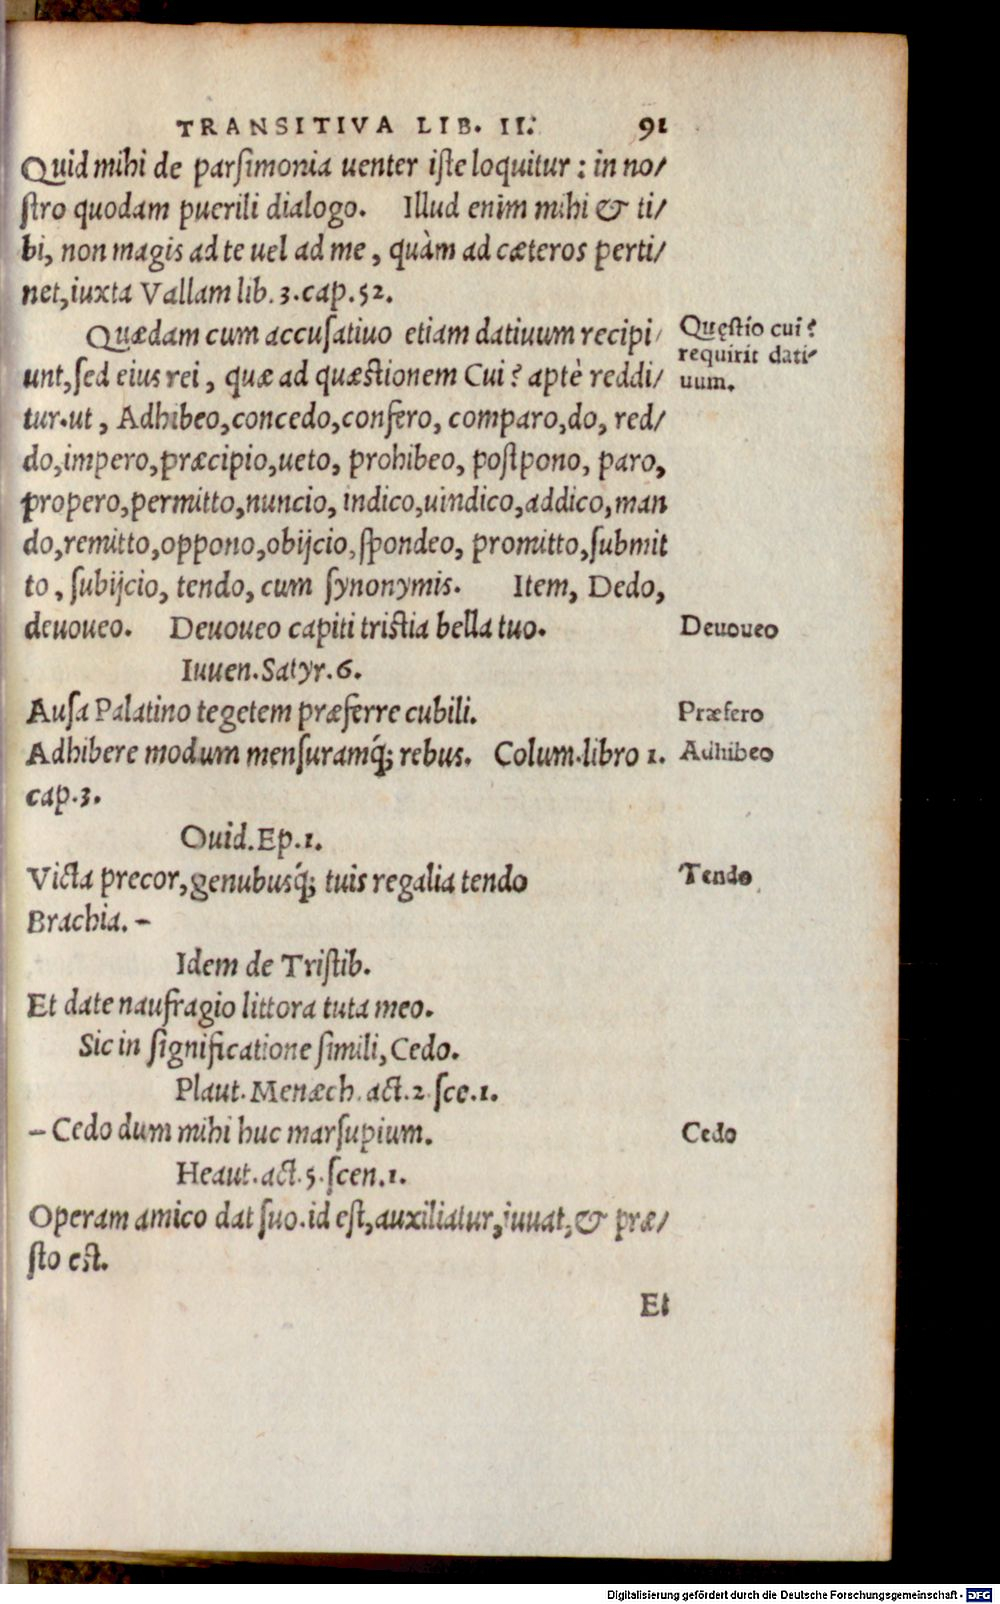 TRANSITIVA LIB. II. 91
Quid mihi de parſimonia uenter iſte loquitur : in no/
ſtro quodam puerili dialogo. Illud enim mihi & ti/
bi, non magis ad te uel ad me, quàm ad cæteros perti/
net, iuxta Vallam lib. 3. cap. 52.
Quædam cum accuſatiuo etiam datiuum recipi/
unt, ſed eius rei, quæ ad quæſtionem Cui? aptè reddi/
tur. ut, Adhibeo, concedo, confero, comparo, do, red/
do, impero, præcipio, ueto, prohibeo, poſtpono, paro,
propero, permitto, nuncio, indico, uindico, addico, man
do, remitto, oppono, obijcio, ſpondeo, promitto, ſubmit
to, ſubijcio, tendo, cum ſynonymis. Item, Dedo,
deuoueo. Deuoueo capiti triſtia bella tuo.
Iuuen. Satyr. 6.
Auſa Palatino tegetem præferre cubili.
Adhibere modum menſuramq́; rebus. Colum. libro 1.
cap. 3.
Ouid. Ep. 1.
Victa precor, genubusq́; tuis regalia tendo
Brachia. –
Idem de Triſtib.
Et date naufragio littora tuta meo.
Sic in ſignificatione ſimili, Cedo.
Plaut. Menæch. act. 2. ſce. 1.
– Cedo dum mihi huc marſupium.
Heaut. act. 5. ſcen. 1.
Operam amico dat ſuo. id eſt, auxiliatur, iuuat, & præ/
ſto eſt.
Et
Quęſtio cui?
requirit dati/
uum.
Deuoueo
Præfero
Adhibeo
Tendo
Cedo
Digitalisierung gefördert durch die Deutsche Forschungsgemeinschaft - DFG